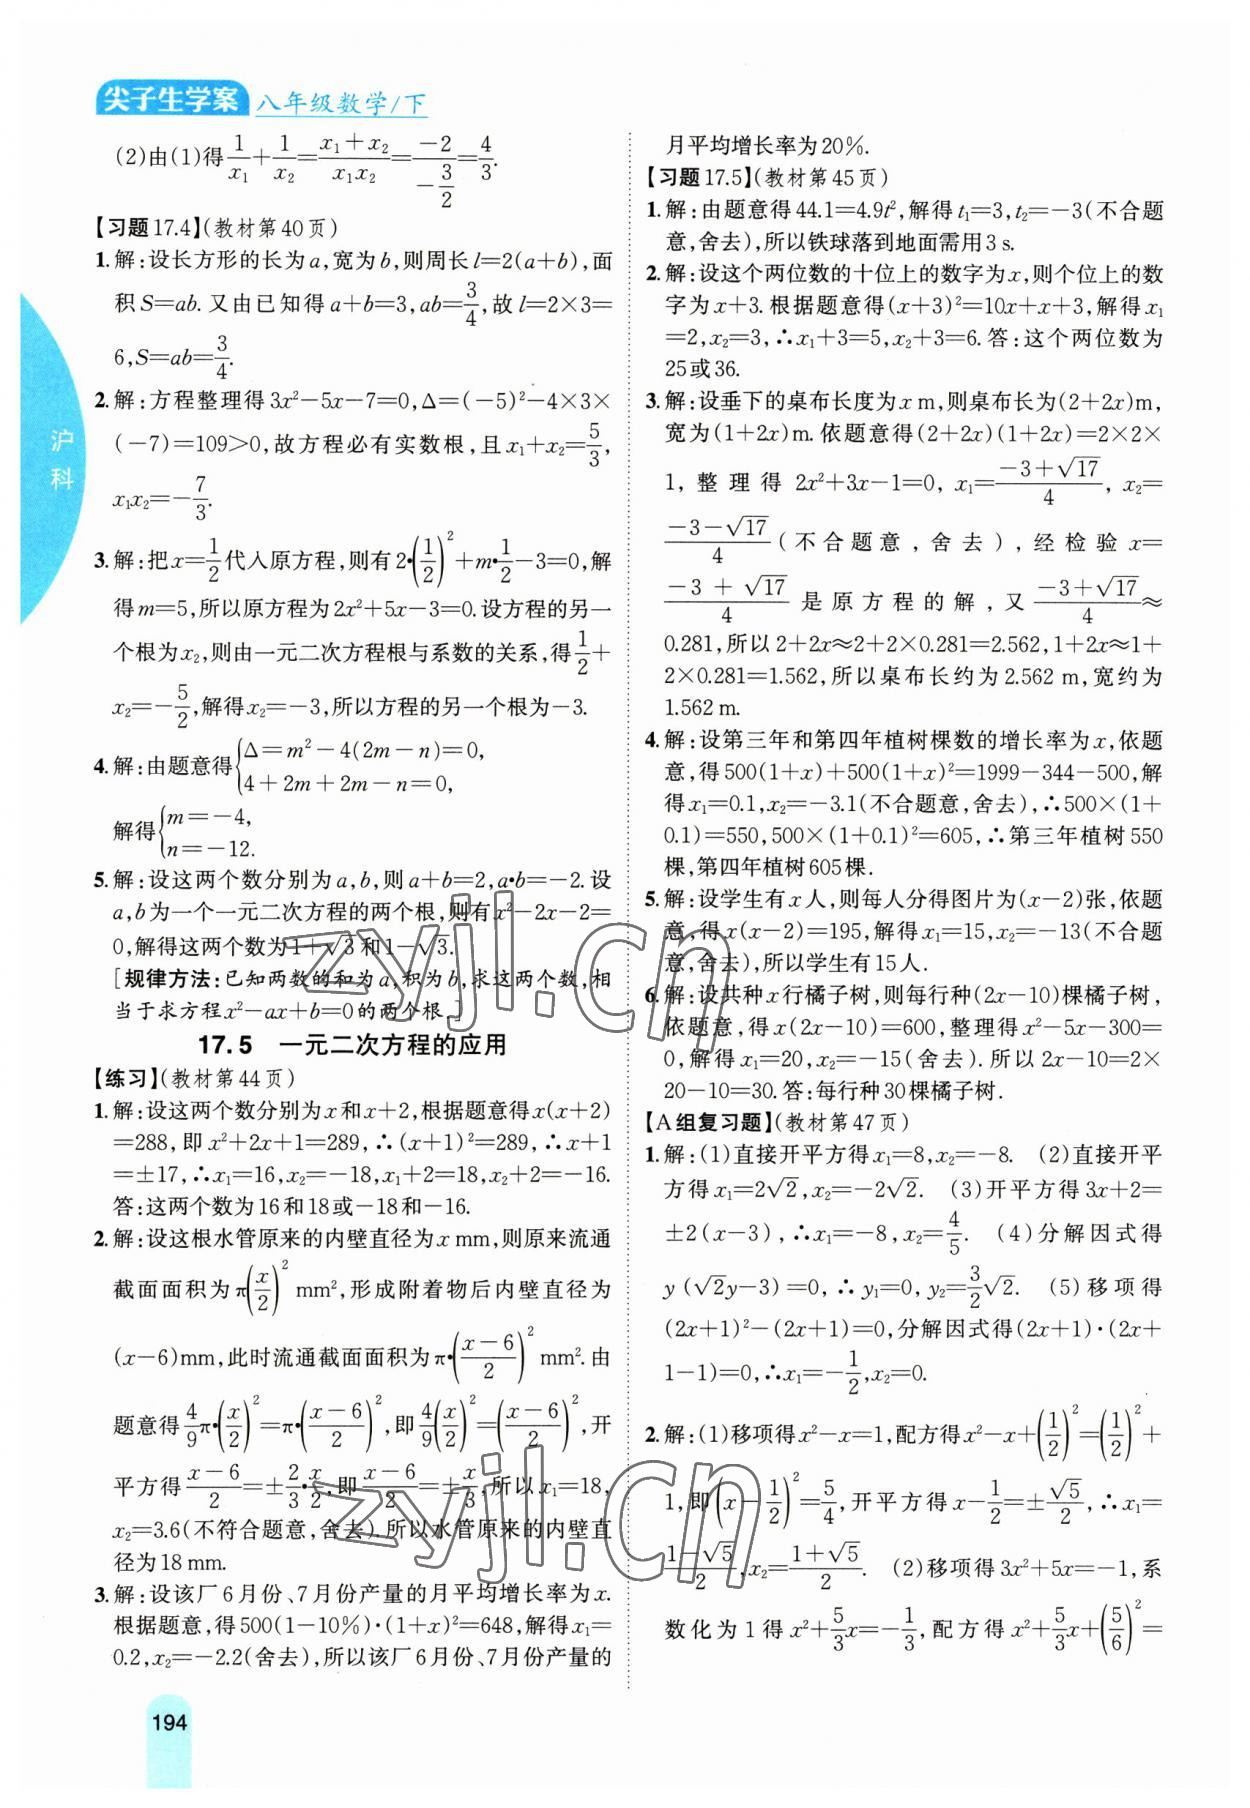 尖子生学案 八年级数学/下
(2)由(1)得1/x₁+1/x₂=(x₁+x₂)/(x₁x₂)=(-2)/(-3/2)=4/3.
【习题17.4】(教材第40页)
1.解:设长方形的长为a,宽为b,则周长l=2(a+b),面
积S=ab.又由已知得a+b=3,ab=3/4,故l=2×3=
6,S=ab=3/4.
2.解:方程整理得3x²-5x-7=0,Δ=(-5)²-4×3×
(-7)=109>0,故方程必有实数根,且x₁+x₂=5/3,
x₁x₂=-7/3.
3.解:把x=1/2代入原方程,则有2•(1/2)²+m•1/2-3=0,解
得m=5,所以原方程为2x²+5x-3=0.设方程的另一
个根为x₂,则由一元二次方程根与系数的关系,得1/2+
x₂=-5/2,解得x₂=-3,所以方程的另一个根为-3.
4.解:由题意得{Δ=m²-4(2m-n)=0,
4+2m+2m-n=0,
解得{m=-4,
n=-12.
5.解:设这两个数分别为a,b,则a+b=2,a•b=-2.设
a,b为一个一元二次方程的两个根,则有x²-2x-2=
0,解得这两个数为1+√3和1-√3.
[规律方法:已知两数的和为a,积为b,求这两个数,相
当于求方程x²-ax+b=0的两个根.]
17.5 一元二次方程的应用
【练习】(教材第44页)
1.解:设这两个数分别为x和x+2,根据题意得x(x+2)
=288,即x²+2x+1=289,∴(x+1)²=289,∴x+1
=±17,∴x₁=16,x₂=-18,x₁+2=18,x₂+2=-16.
答:这两个数为16和18或-18和-16.
2.解:设这根水管原来的内壁直径为x mm,则原来流通
截面面积为π(x/2)² mm²,形成附着物后内壁直径为
(x-6)mm,此时流通截面面积为π•((x-6)/2)² mm².由
题意得4/9π•(x/2)²=π•((x-6)/2)²,即4/9(x/2)²=((x-6)/2)²,开
平方得(x-6)/2=±2/3•x/2,即(x-6)/2=±x/3,所以x₁=18,
x₂=3.6(不符合题意,舍去).所以水管原来的内壁直
径为18 mm.
3.解:设该厂6月份、7月份产量的月平均增长率为x.
根据题意,得500(1-10%)·(1+x)²=648,解得x₁=
0.2,x₂=-2.2(舍去),所以该厂6月份、7月份产量的
月平均增长率为20%.
【习题17.5】(教材第45页)
1.解:由题意得44.1=4.9t²,解得t₁=3,t₂=-3(不合题
意,舍去),所以铁球落到地面需用3 s.
2.解:设这个两位数的十位上的数字为x,则个位上的数
字为x+3.根据题意得(x+3)²=10x+x+3,解得x₁
=2,x₂=3,∴x₁+3=5,x₂+3=6.答:这个两位数为
25或36.
3.解:设垂下的桌布长度为x m,则桌布长为(2+2x)m,
宽为(1+2x)m.依题意得(2+2x)(1+2x)=2×2×
1,整理得2x²+3x-1=0,x₁=(-3+√17)/4,x₂=
(-3-√17)/4(不合题意,舍去),经检验x=
(-3+√17)/4是原方程的解,又(-3+√17)/4≈
0.281,所以2+2x≈2+2×0.281=2.562,1+2x≈1+
2×0.281=1.562,所以桌布长约为2.562 m,宽约为
1.562 m.
4.解:设第三年和第四年植树棵数的增长率为x,依题
意,得500(1+x)+500(1+x)²=1999-344-500,解
得x₁=0.1,x₂=-3.1(不合题意,舍去),∴500×(1+
0.1)=550,500×(1+0.1)²=605,∴第三年植树550
棵,第四年植树605棵.
5.解:设学生有x人,则每人分得图片为(x-2)张,依题
意,得x(x-2)=195,解得x₁=15,x₂=-13(不合题
意,舍去),所以学生有15人.
6.解:设共种x行橘子树,则每行种(2x-10)棵橘子树,
依题意,得x(2x-10)=600,整理得x²-5x-300=
0,解得x₁=20,x₂=-15(舍去).所以2x-10=2×
20-10=30.答:每行种30棵橘子树.
【A组复习题】(教材第47页)
1.解:(1)直接开平方得x₁=8,x₂=-8. (2)直接开平
方得x₁=2√2,x₂=-2√2. (3)开平方得3x+2=
±2(x-3),∴x₁=-8,x₂=4/5. (4)分解因式得
y(√2y-3)=0,∴y₁=0,y₂=3/2√2. (5)移项得
(2x+1)²-(2x+1)=0,分解因式得(2x+1)·(2x+
1-1)=0,∴x₁=-1/2,x₂=0.
2.解:(1)移项得x²-x=1,配方得x²-x+(1/2)²=(1/2)²+
1,即(x-1/2)²=5/4,开平方得x-1/2=±√5/2,∴x₁=
(1-√5)/2,x₂=(1+√5)/2. (2)移项得3x²+5x=-1,系
数化为1得x²+5/3x=-1/3,配方得x²+5/3x+(5/6)²=
沪科
194
zyjl.cn
zyjl.cn